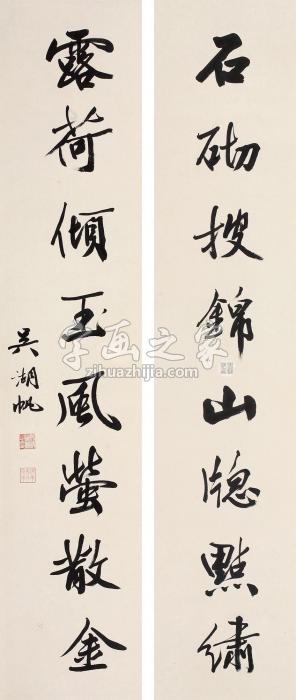 石砌搜錦山牕點繡
露荷傾玉風螢散金
吳湖帆
字画之家
zihuazhijia.com